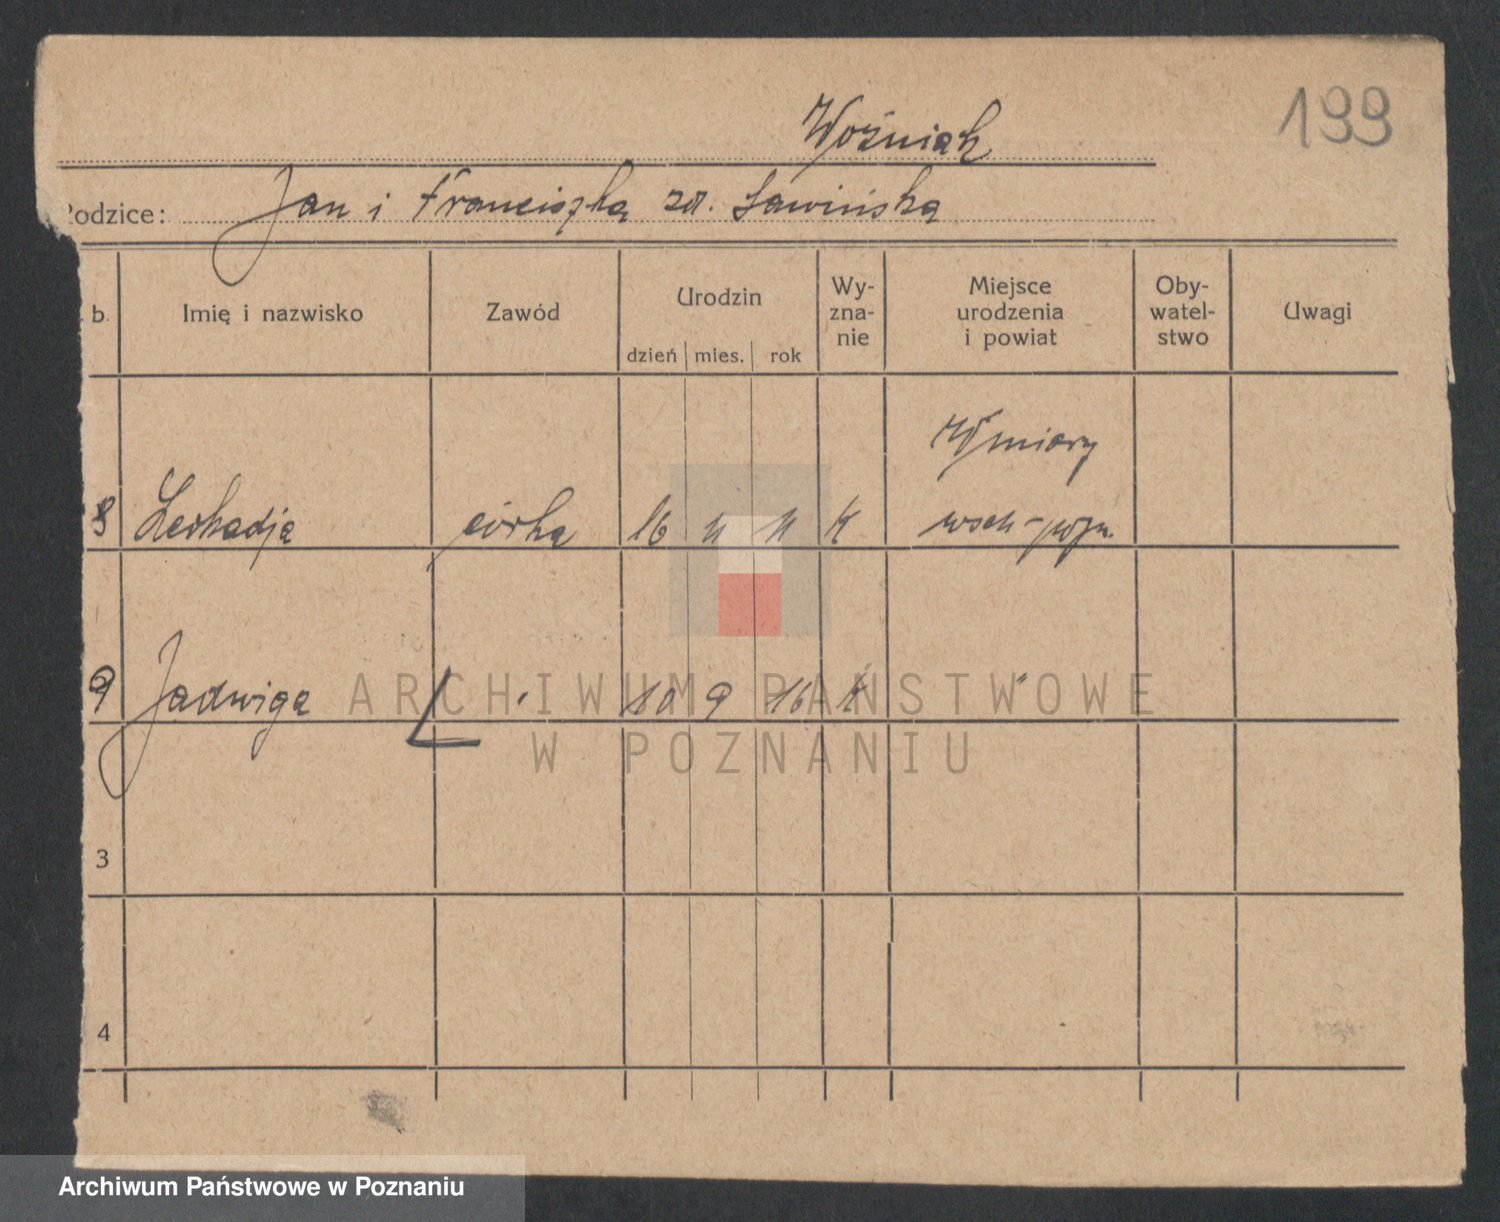 199
Woźniak
Rodzice: Jan i Franciszka zd. Ławińska
b. Imię i nazwisko Zawód Urodzin dzień mies. rok Wy-zna-nie Miejsce urodzenia i powiat Oby-watel-stwo Uwagi
8 Leokadja córka 16 11 11 K
9 Jadwiga " 10 9 16 K "
3
4
ARCHIWUM PAŃSTWOWE
W POZNANIU
Archiwum Państwowe w Poznaniu